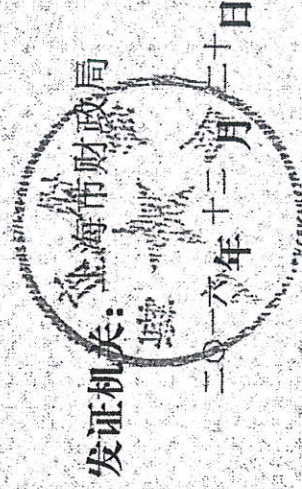 发证机关：上海市财政局
二〇一六年十二月二十日